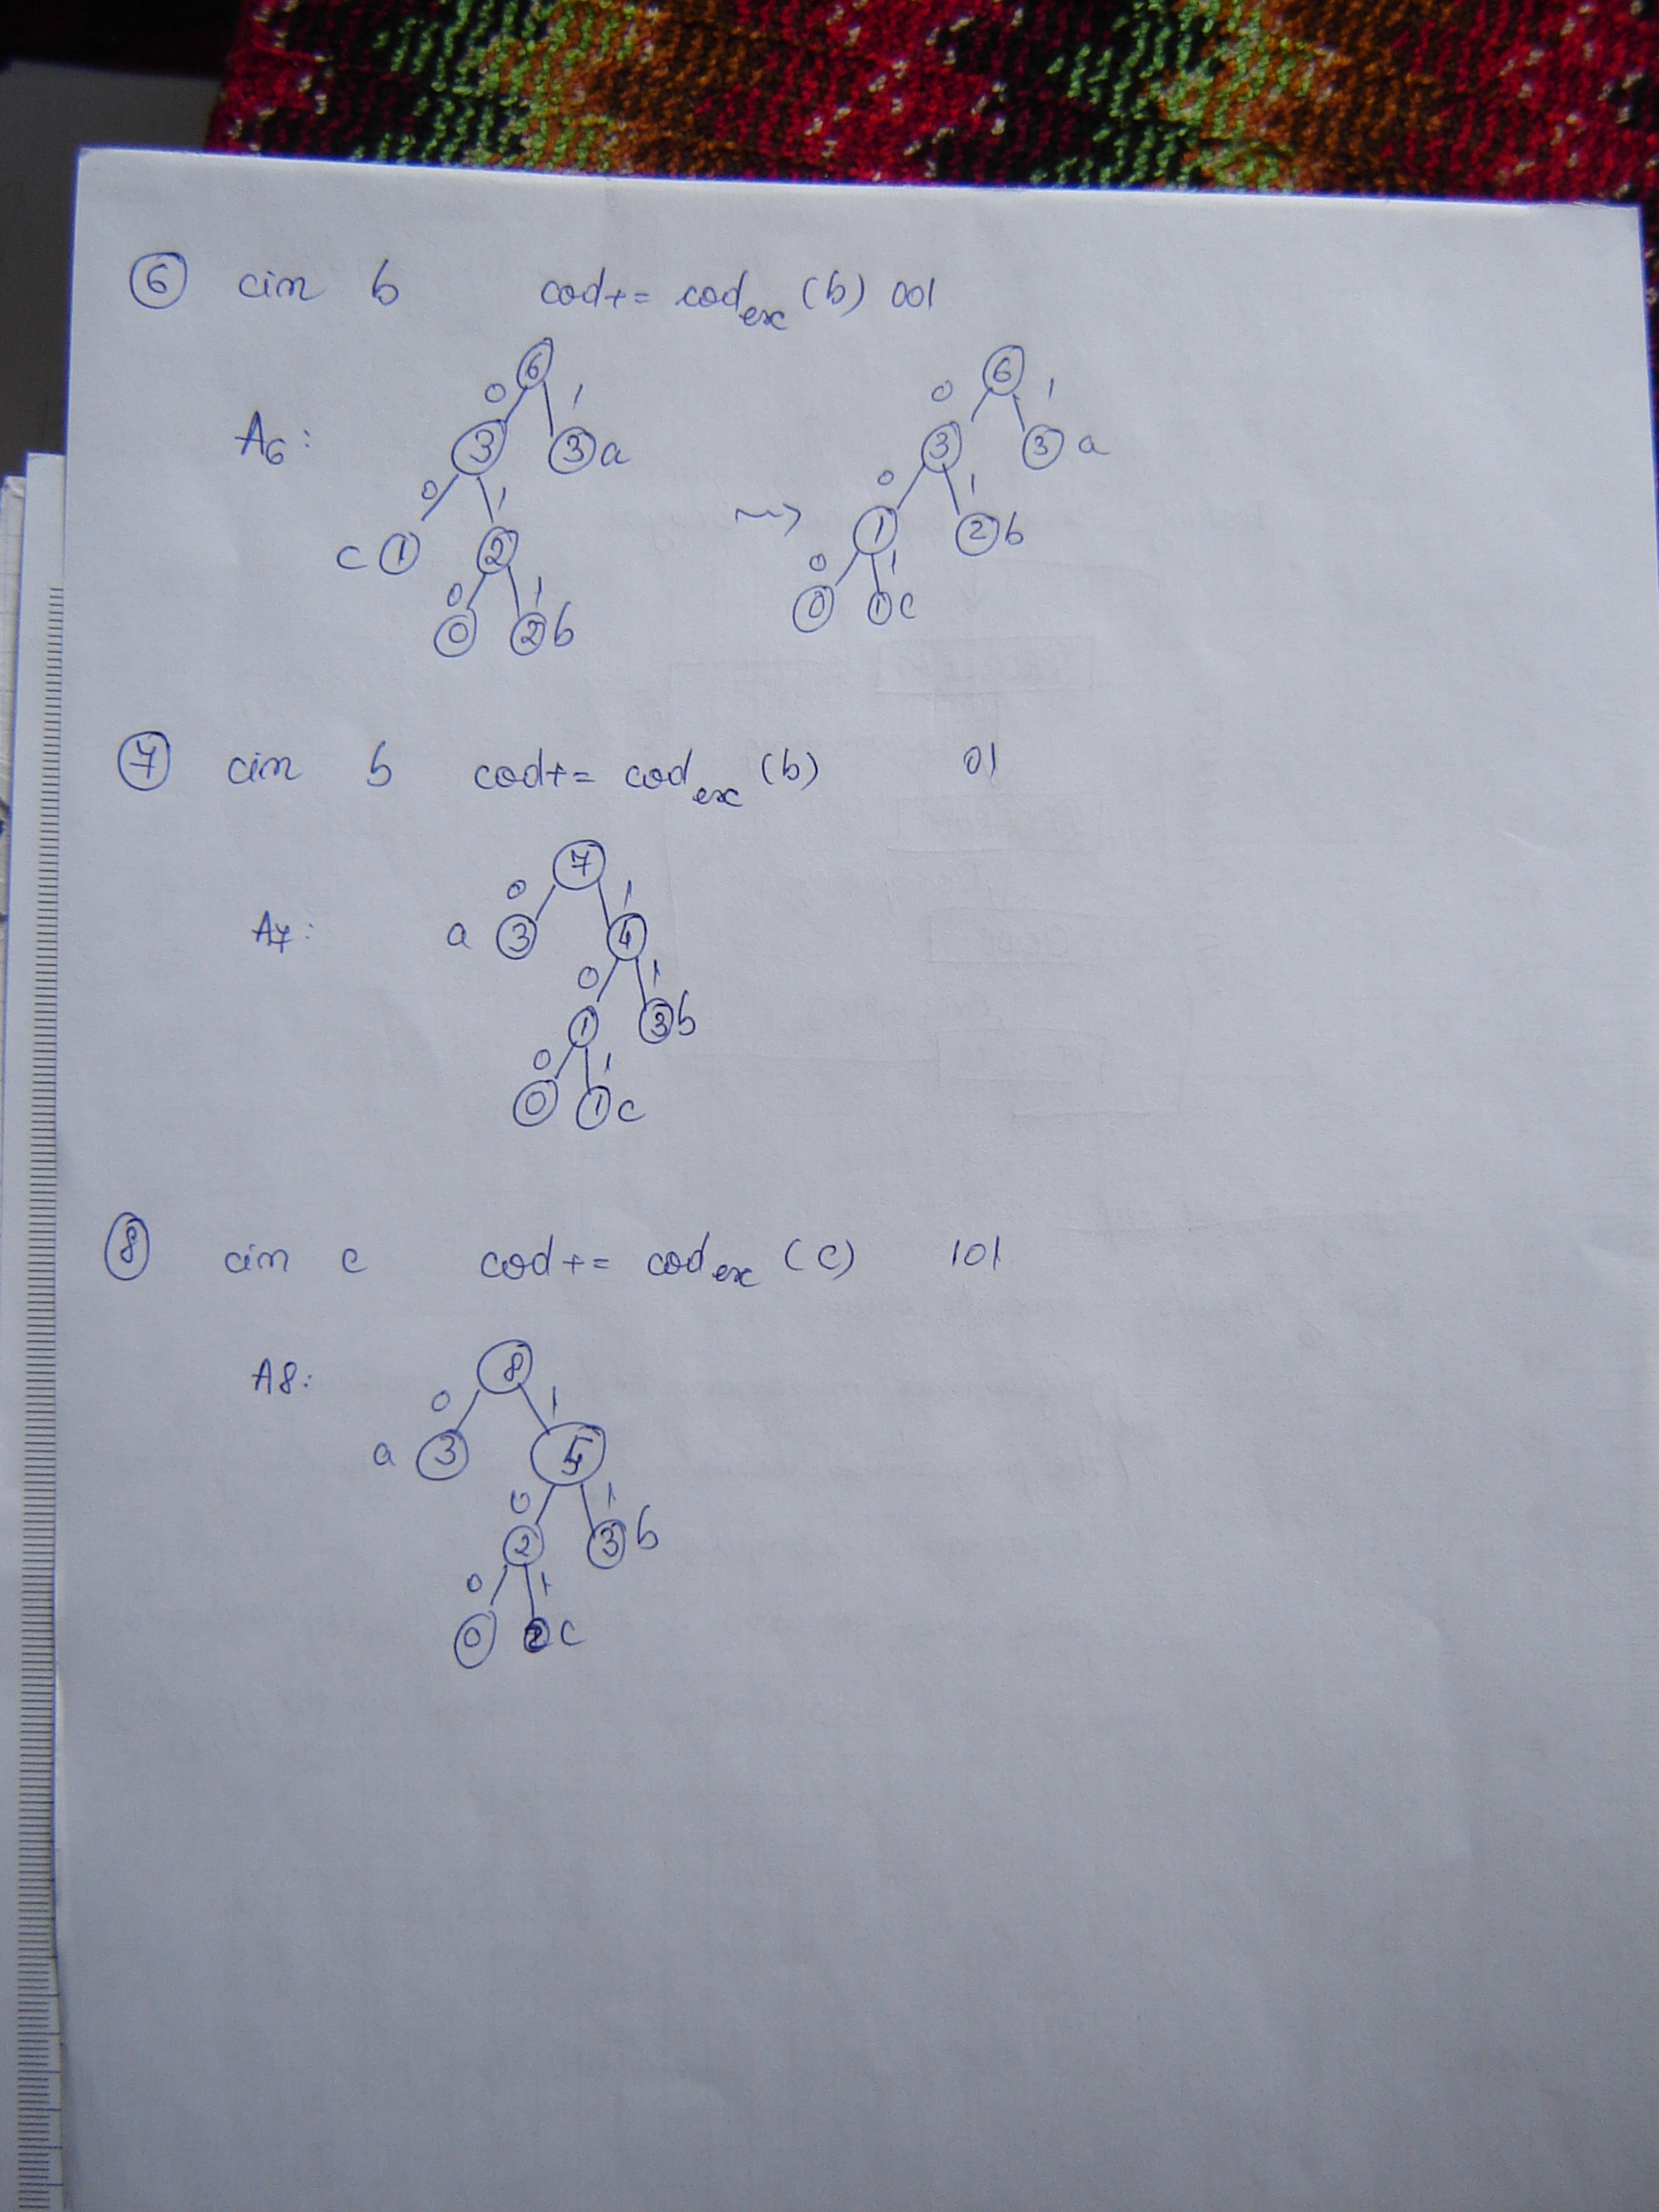 6 cin b cod+= cod ex (b) 001
6 6
0 1 0 1
A6: 3 3 a 3 3 a
0 1 0 1
c 1 2 1 2 b
0 1 0 1
0 2 b 0 1 c
7 cin b cod+= cod ex (b) 01
7
0 1
A7: a 3 4
0 1
1 3 b
0 1
0 1 c
8 cin c cod+= cod ex (c) 101
A8: 8
0 1
a 3 5
0 1
2 3 b
0 1
0 2 c